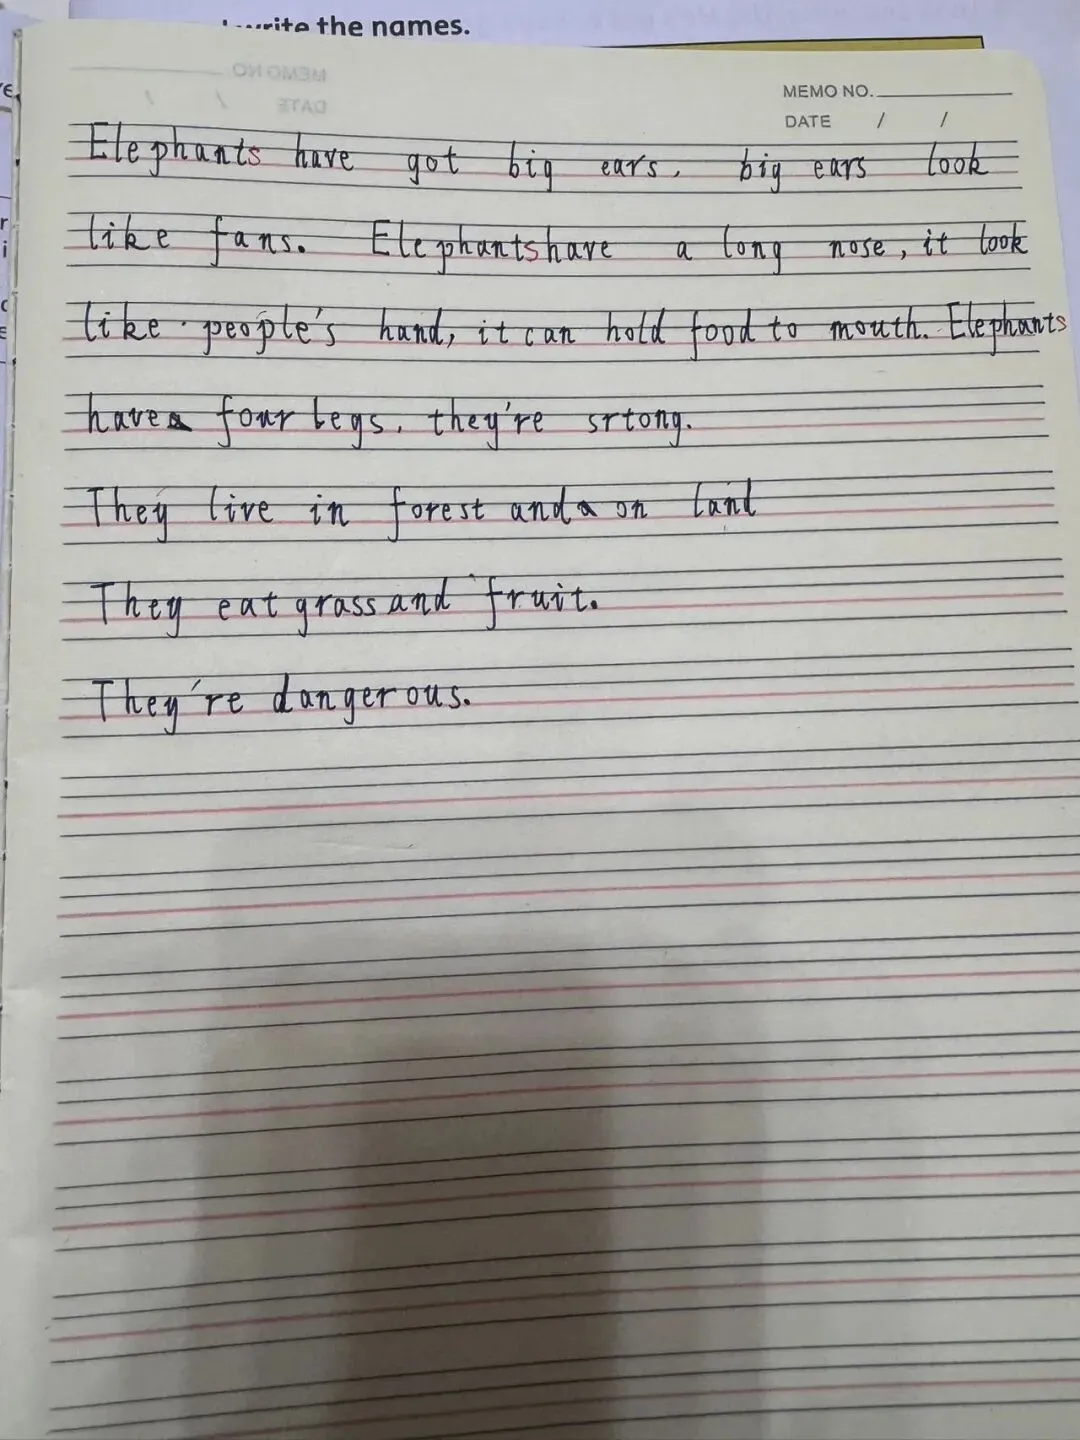 write the names.
MEMO NO.
DATE / /
MEMO NO
DATE / /
Elephants have got big ears, big ears look
like fans. Elephants have a long nose, it look
like people's hand, it can hold food to mouth. Elephants
have four legs, they're srtong.
They live in forest and on land
They eat grass and fruit.
They're dangerous.